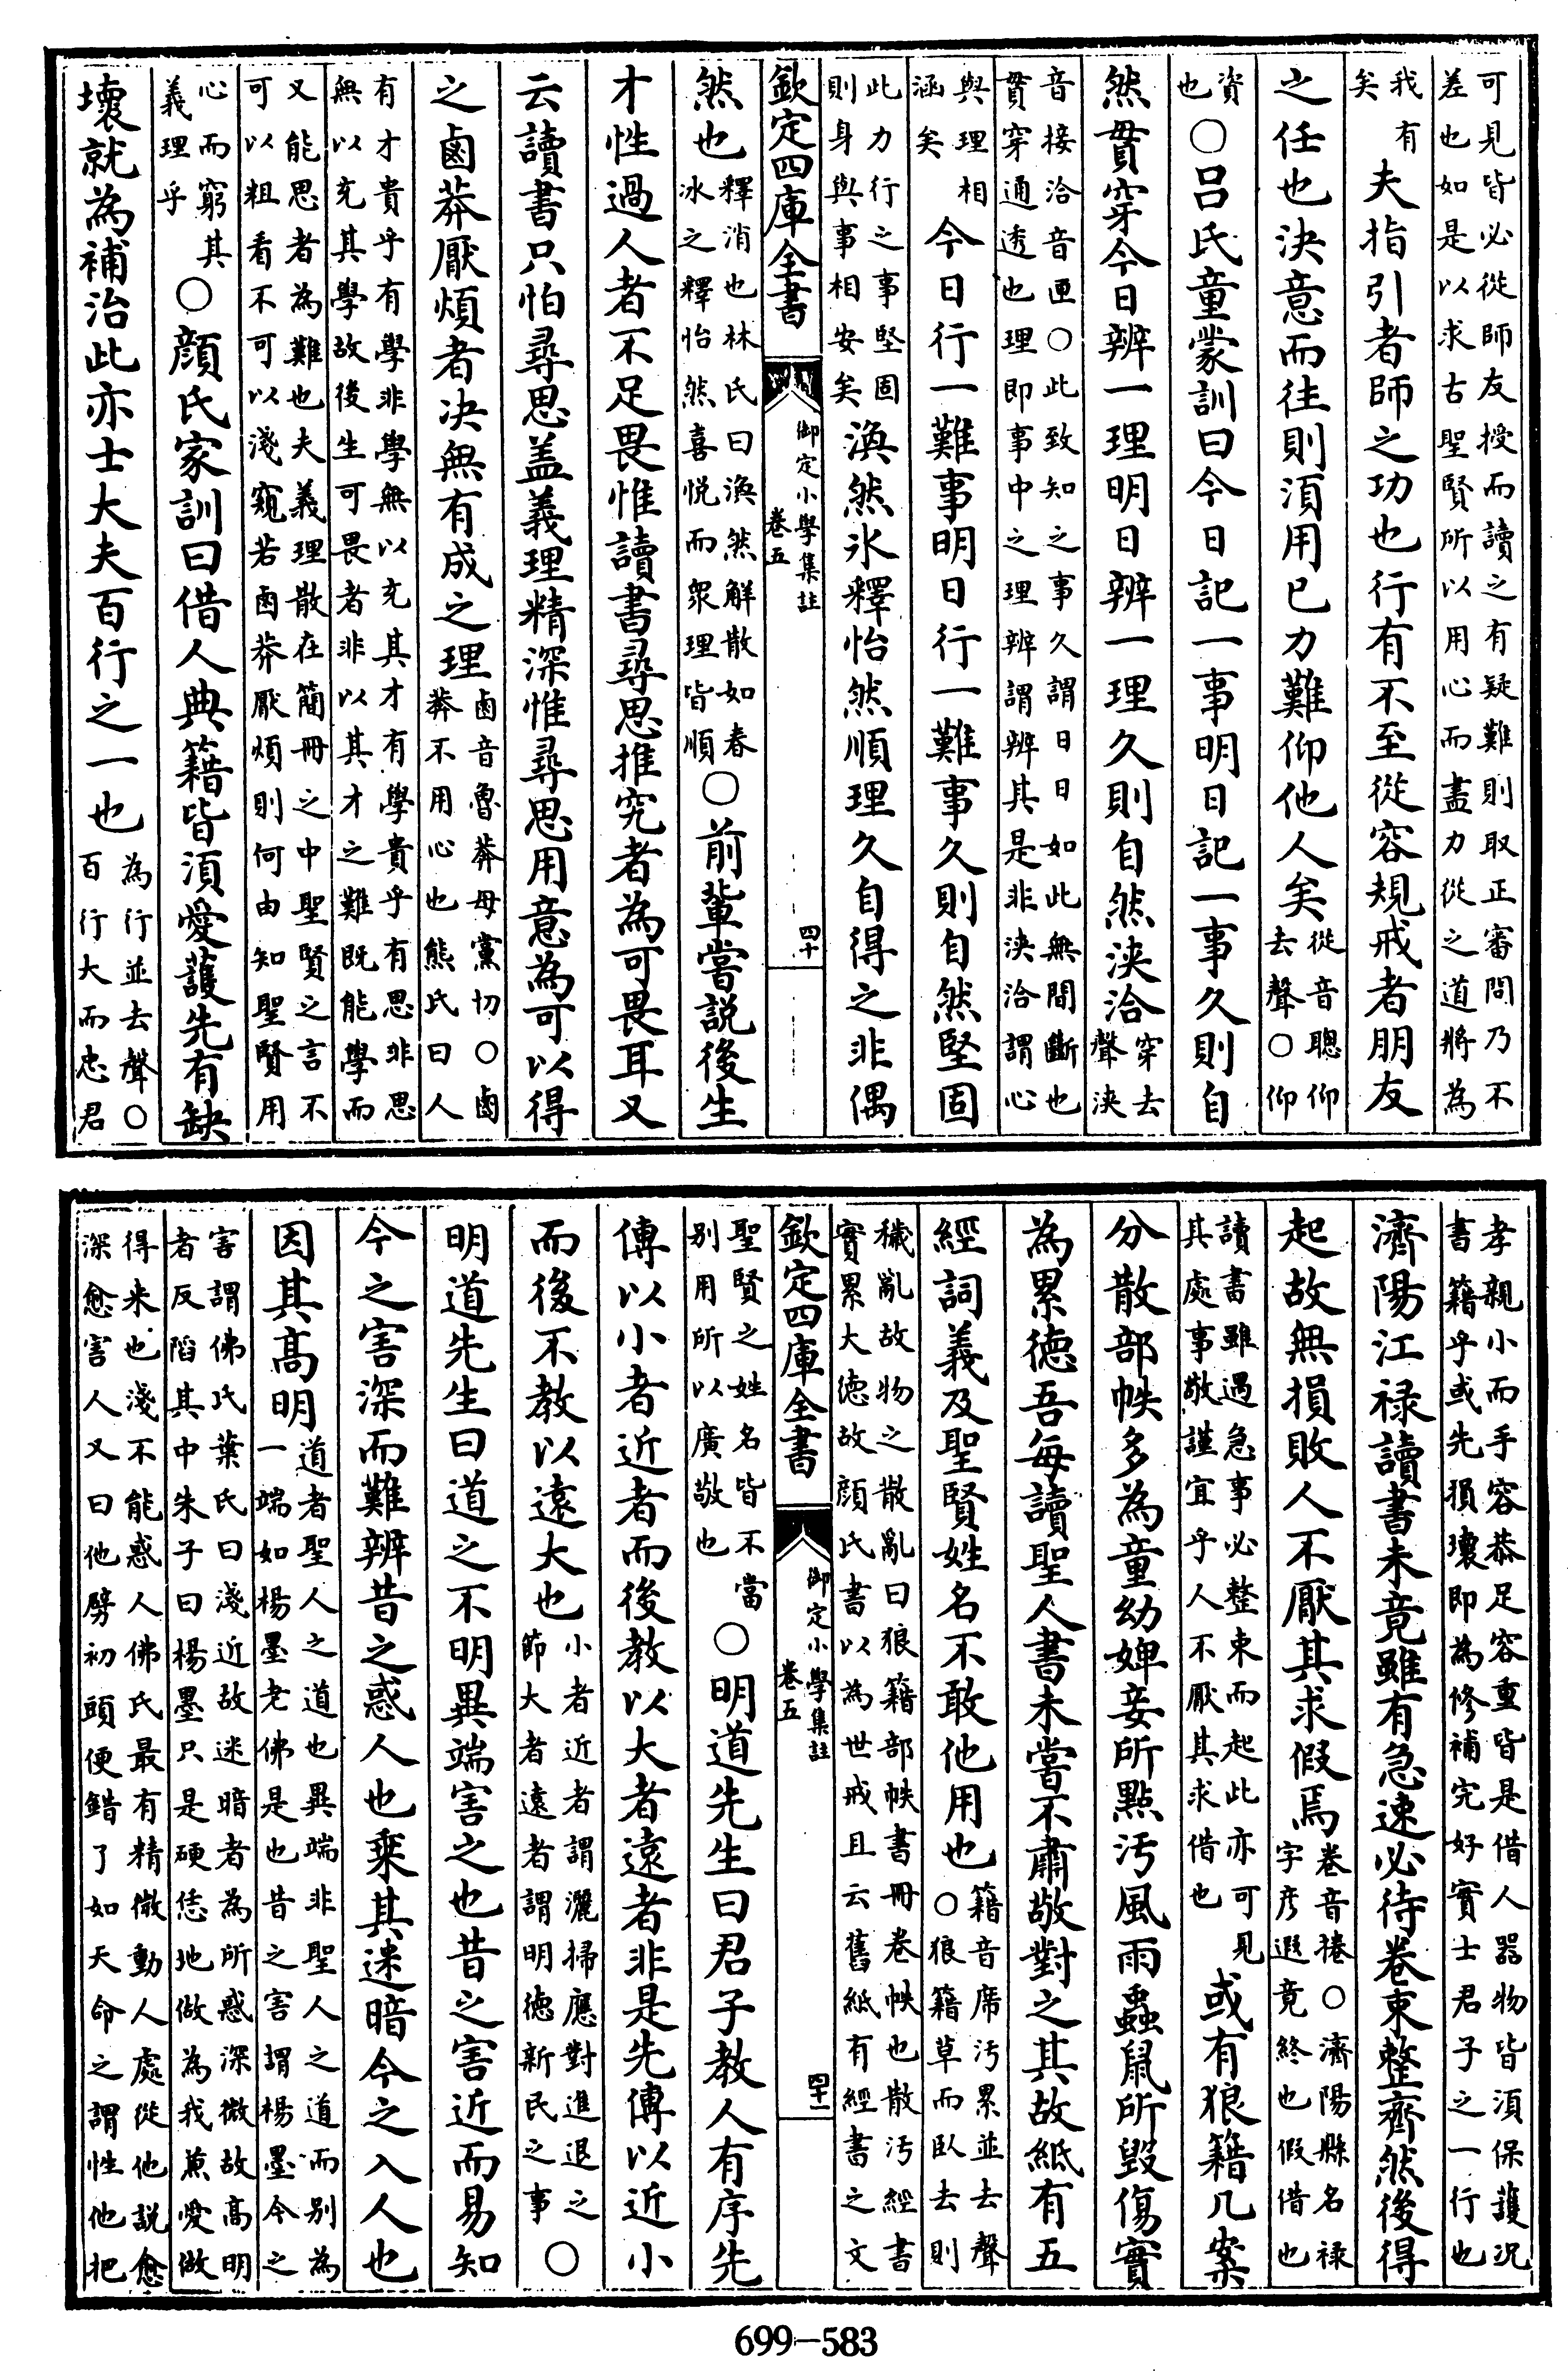 可見皆必從師友授而讀之有疑難則取正審問乃不
差也如是以求古聖賢所以用心而盡力從之道將為
我有
矣
夫指引者師之功也行有不至從容規戒者朋友
之任也決意而往則須用已力難仰他人矣
從音聰仰
去聲○仰
資
也
○呂氏童蒙訓曰今日記一事明日記一事久則自
然貫穿今日辨一理明日辨一理久則自然浹洽
穿去
聲浹
音接洽音匣○此致知之事久謂日日如此無間斷也
貫穿通透也理即事中之理辨謂辨其是非浹洽謂心
與理相
涵矣
今日行一難事明日行一難事久則自然堅固
此力行之事堅固
則身與事相安矣
渙然氷釋怡然順理久自得之非偶
欽定四庫全書
御定小學集註
卷五
四十
然也
釋消也林氏曰渙然解散如春
冰之釋怡然喜悅而衆理皆順
○前輩嘗説後生
才性過人者不足畏惟讀書尋思推究者為可畏耳又
云讀書只怕尋思盖義理精深惟尋思用意為可以得
之鹵莽厭煩者決無有成之理
鹵音魯莽母黨切○鹵
莽不用心也熊氏曰人
有才貴乎有學非學無以充其才有學貴乎有思非思
無以充其學故後生可畏者非以其才之難既能學而
又能思者為難也夫義理散在簡冊之中聖賢之言不
可以粗看不可以淺窺若鹵莽厭煩則何由知聖賢用
心而窮其
義理乎
○顔氏家訓曰借人典籍皆須愛護先有缺
壞就為補治此亦士大夫百行之一也
為行並去聲○
百行大而忠君
孝親小而手容恭足容重皆是借人器物皆須保護況
書籍乎或先損壞即為修補完好實士君子之一行也
濟陽江禄讀書未竟雖有急速必待卷束整齊然後得
起故無損敗人不厭其求假焉
卷音捲○濟陽縣名禄
字彦遐竟終也假借也
讀書雖遇急事必整束而起此亦可見
其處事敬謹宜乎人不厭其求借也
或有狼籍几案
分散部帙多為童幼婢妾所點汚風雨蟲鼠所毀傷實
為累德吾每讀聖人書未嘗不肅敬對之其故紙有五
經詞義及聖賢姓名不敢他用也
籍音席汚累並去聲
○狼籍草而臥去則
穢亂故物之散亂曰狼籍部帙書冊卷帙也散汚經書
實累大德故顔氏書以為世戒且云舊紙有經書之文
欽定四庫全書
御定小學集註
卷五
四十一
聖賢之姓名皆不當
别用所以廣敬也
○明道先生曰君子教人有序先
傳以小者近者而後教以大者遠者非是先傳以近小
而後不教以遠大也
小者近者謂灑掃應對進退之
節大者遠者謂明德新民之事
○
明道先生曰道之不明異端害之也昔之害近而易知
今之害深而難辨昔之惑人也乗其迷暗今之入人也
因其高明
道者聖人之道也異端非聖人之道而别為
一端如楊墨老佛是也昔之害謂楊墨今之
害謂佛氏葉氏曰淺近故迷暗者為所惑深微故高明
者反陷其中朱子曰楊墨只是硬恁地做為我兼愛做
得来也淺不能惑人佛氏最有精微動人處從他説愈
深愈害人又曰他劈初頭便錯了如天命之謂性他把
699-583